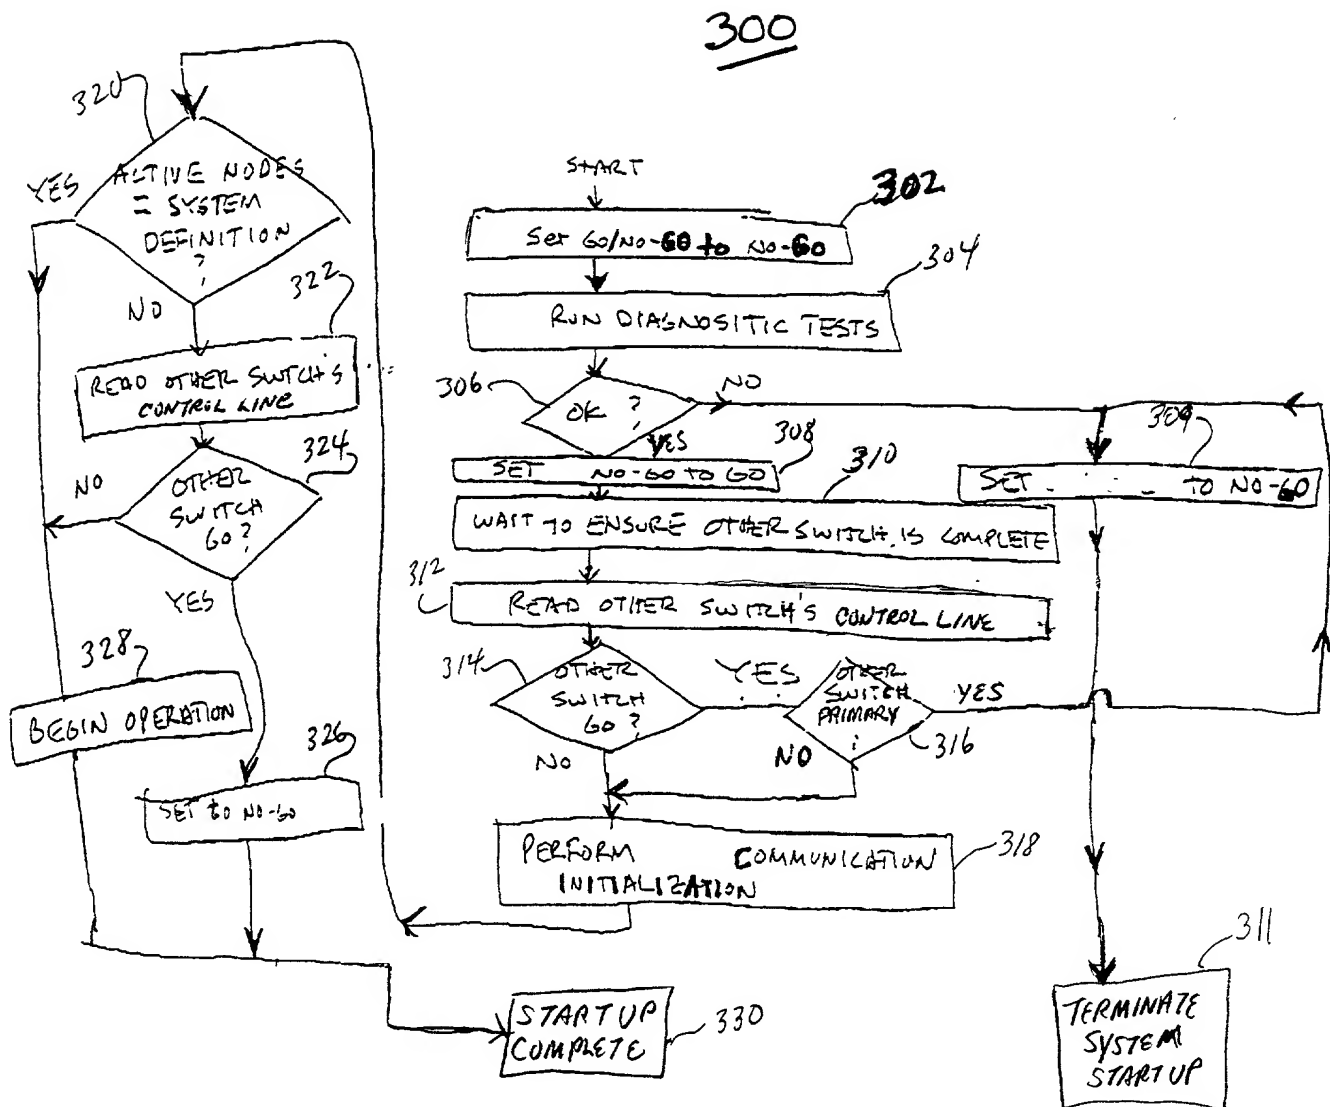 300
320
YES
ACTIVE NODES
= SYSTEM
DEFINITION
?
NO
322
READ OTHER SWTCH'S
CONTROL LINE
324
NO
OTHER
SWITCH
GO?
YES
328
BEGIN OPERATION
326
SET GO NO-GO
START
302
Set GO/NO-GO to NO-GO
304
RUN DIAGNOSITIC TESTS
306
OK ?
NO
YES
308
SET NO-GO TO GO
310
309
SET TO NO-GO
WAIT TO ENSURE OTHER SWITCH IS COMPLETE
312
READ OTHER SWITCH'S CONTROL LINE
314
OTHER
SWITCH
GO?
YES
OTHER
SWITCH
PRIMARY
?
YES
316
NO
NO
PERFORM COMMUNICATION
INITIALIZATION
318
311
TERMINATE
SYSTEM
STARTUP
STARTUP
COMPLETE
330